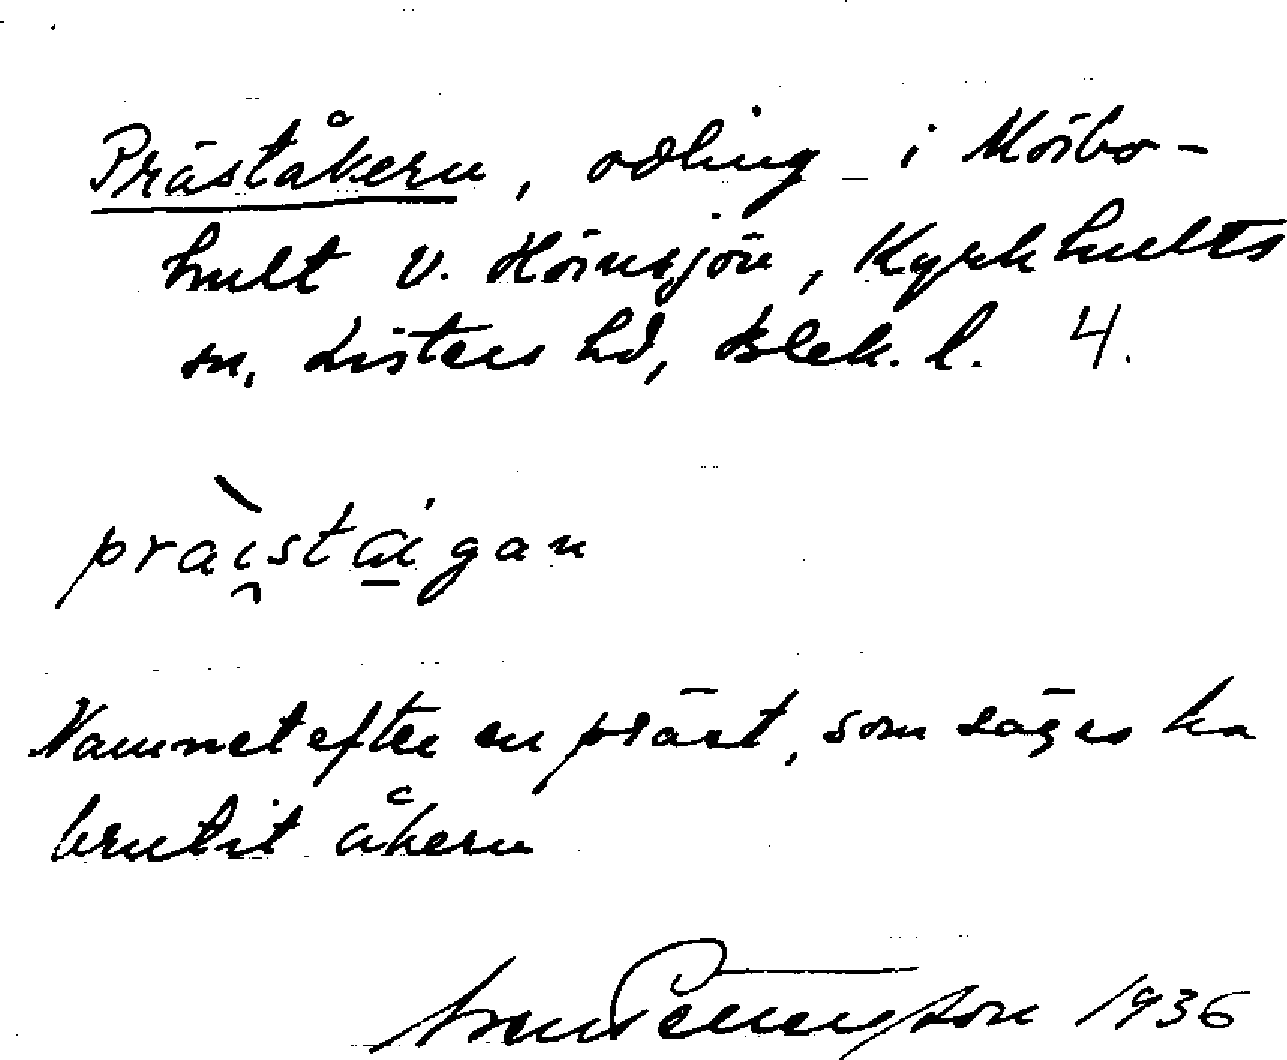 Präståkern, odling i Mörbo-
hult v. Hörnsjön, Kyrkhults
sn, Listers hd, Blek. l. 4.
pràistáigan
Namnet efter en präst, som säges ha
brutit åkern
Sven Pettersson 1936